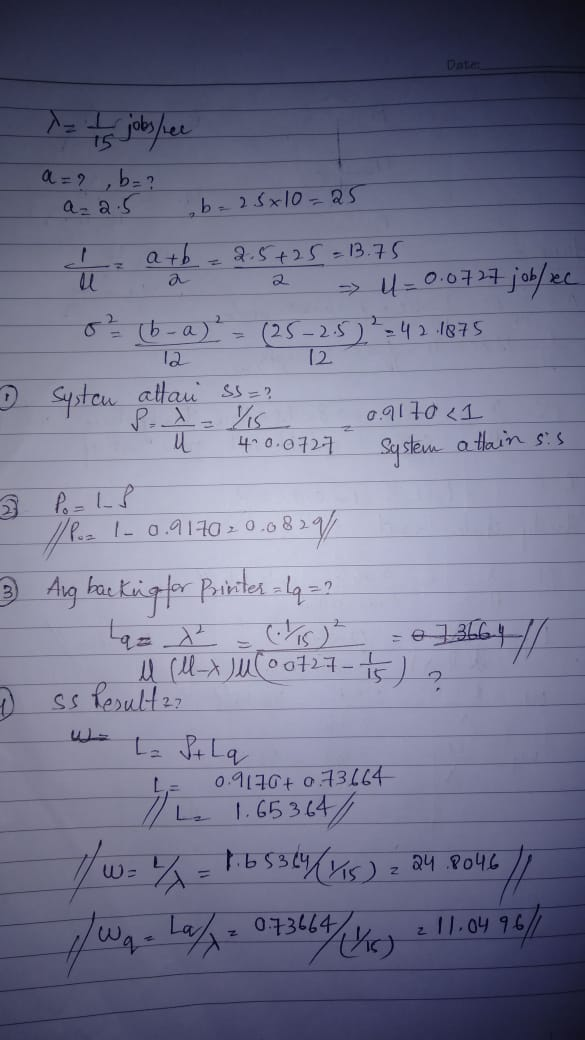 Date:
λ = 1/15 jobs/sec
a = ? , b = ?
a = 2.5 , b = 2.5 x 10 = 25
1/μ = a+b/2 = 2.5+25/2 = 13.75
⇒ μ = 0.0727 job/sec
σ² = (b-a)²/12 = (25-2.5)²/12 = 42.1875
① System attain SS = ?
ρ = λ/μ = 1/15 / 0.0727 = 0.9170 < 1
System attain s.s
② P₀ = 1-ρ
// P₀ = 1 - 0.9170 = 0.0829 //
③ Avg backing for Printer = Lq = ?
Lq = λ²/μ(μ-λ) = (1/15)²/μ(0.0727 - 1/15) = 0.73664 //
?
SS Result = ?
W =
L = ρ + Lq
L = 0.9170 + 0.73664
// L = 1.65364 //
// W = L/λ = 1.65364/(1/15) = 24.8046 //
// Wq = Lq/λ = 0.73664/(1/15) = 11.0496 //